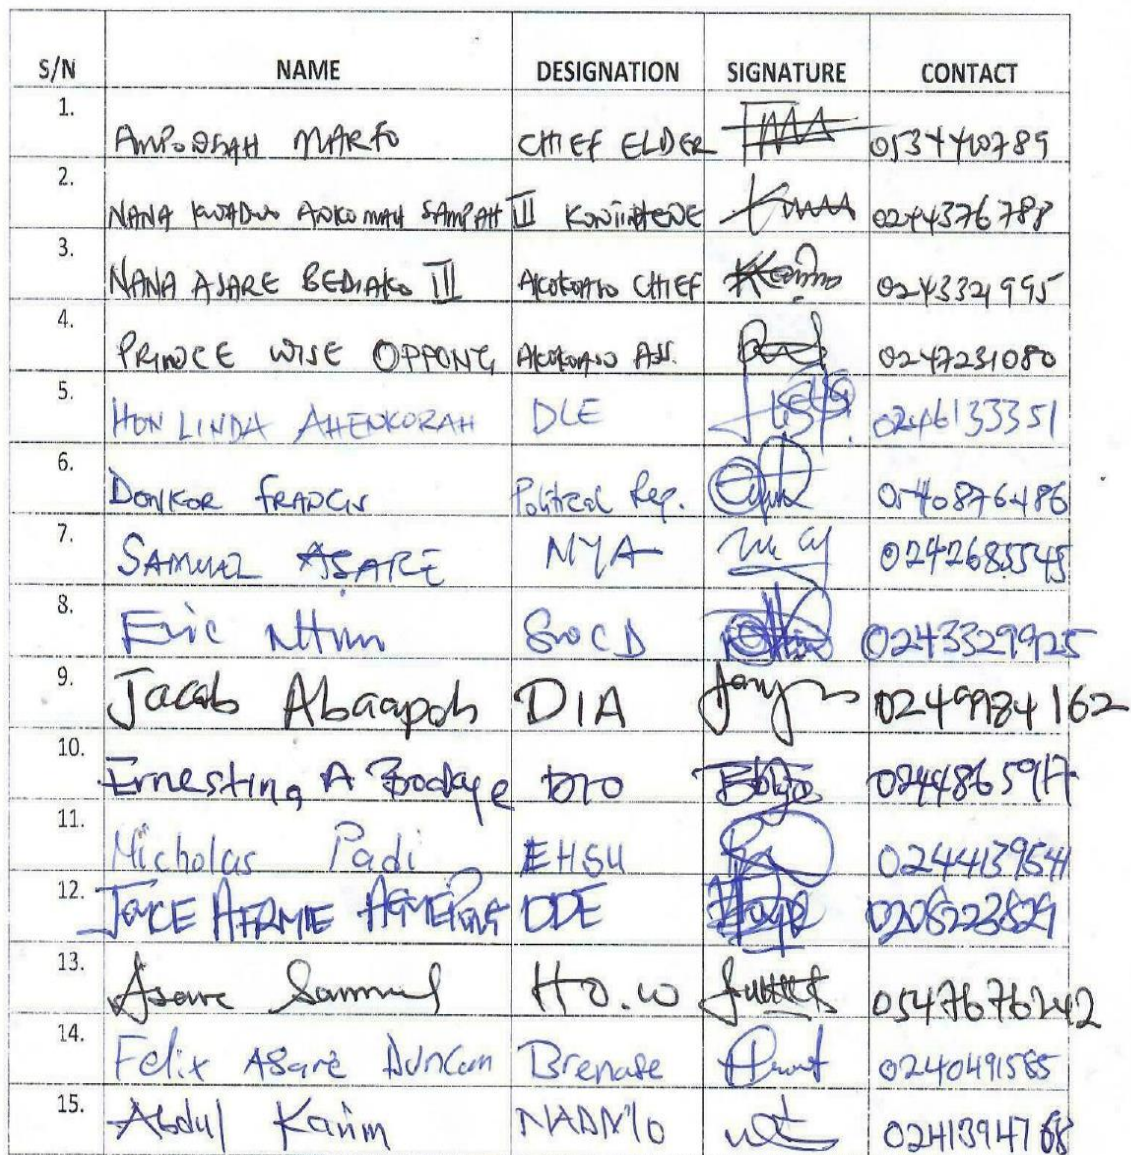 S/N NAME DESIGNATION SIGNATURE CONTACT
1. AMPONSAH MARFO CHIEF ELDER
2. NANA KWADWO ANKOMAH SAMPAH III 0244376788
3. NANA ASARE BEDIAKO III AKOKOASO CHIEF 0243321995
4. PRINCE WISE OPPONG AKOKOASO ASS. 0247231080
5. HON LINDA AHENKORAH DLE 0246133351
6. DONKOR FRANCIS Political Rep. 0540876486
7. SAMUEL ASARE NYA 0242685545
8. Eric Ntim 0243329925
9. Jacob Abaapoh DIA 0249984162
10. Ernestina A Boakye 0244865917
11. Nicholas Padi EHSU 0244139541
12. JOYCE AFRIYIE AGYEPONG DDE
13. Asare Samuel HO.W 0547676242
14. Felix Asare Duncan Brenase 0240491585
15. Abdul Karim NADMO